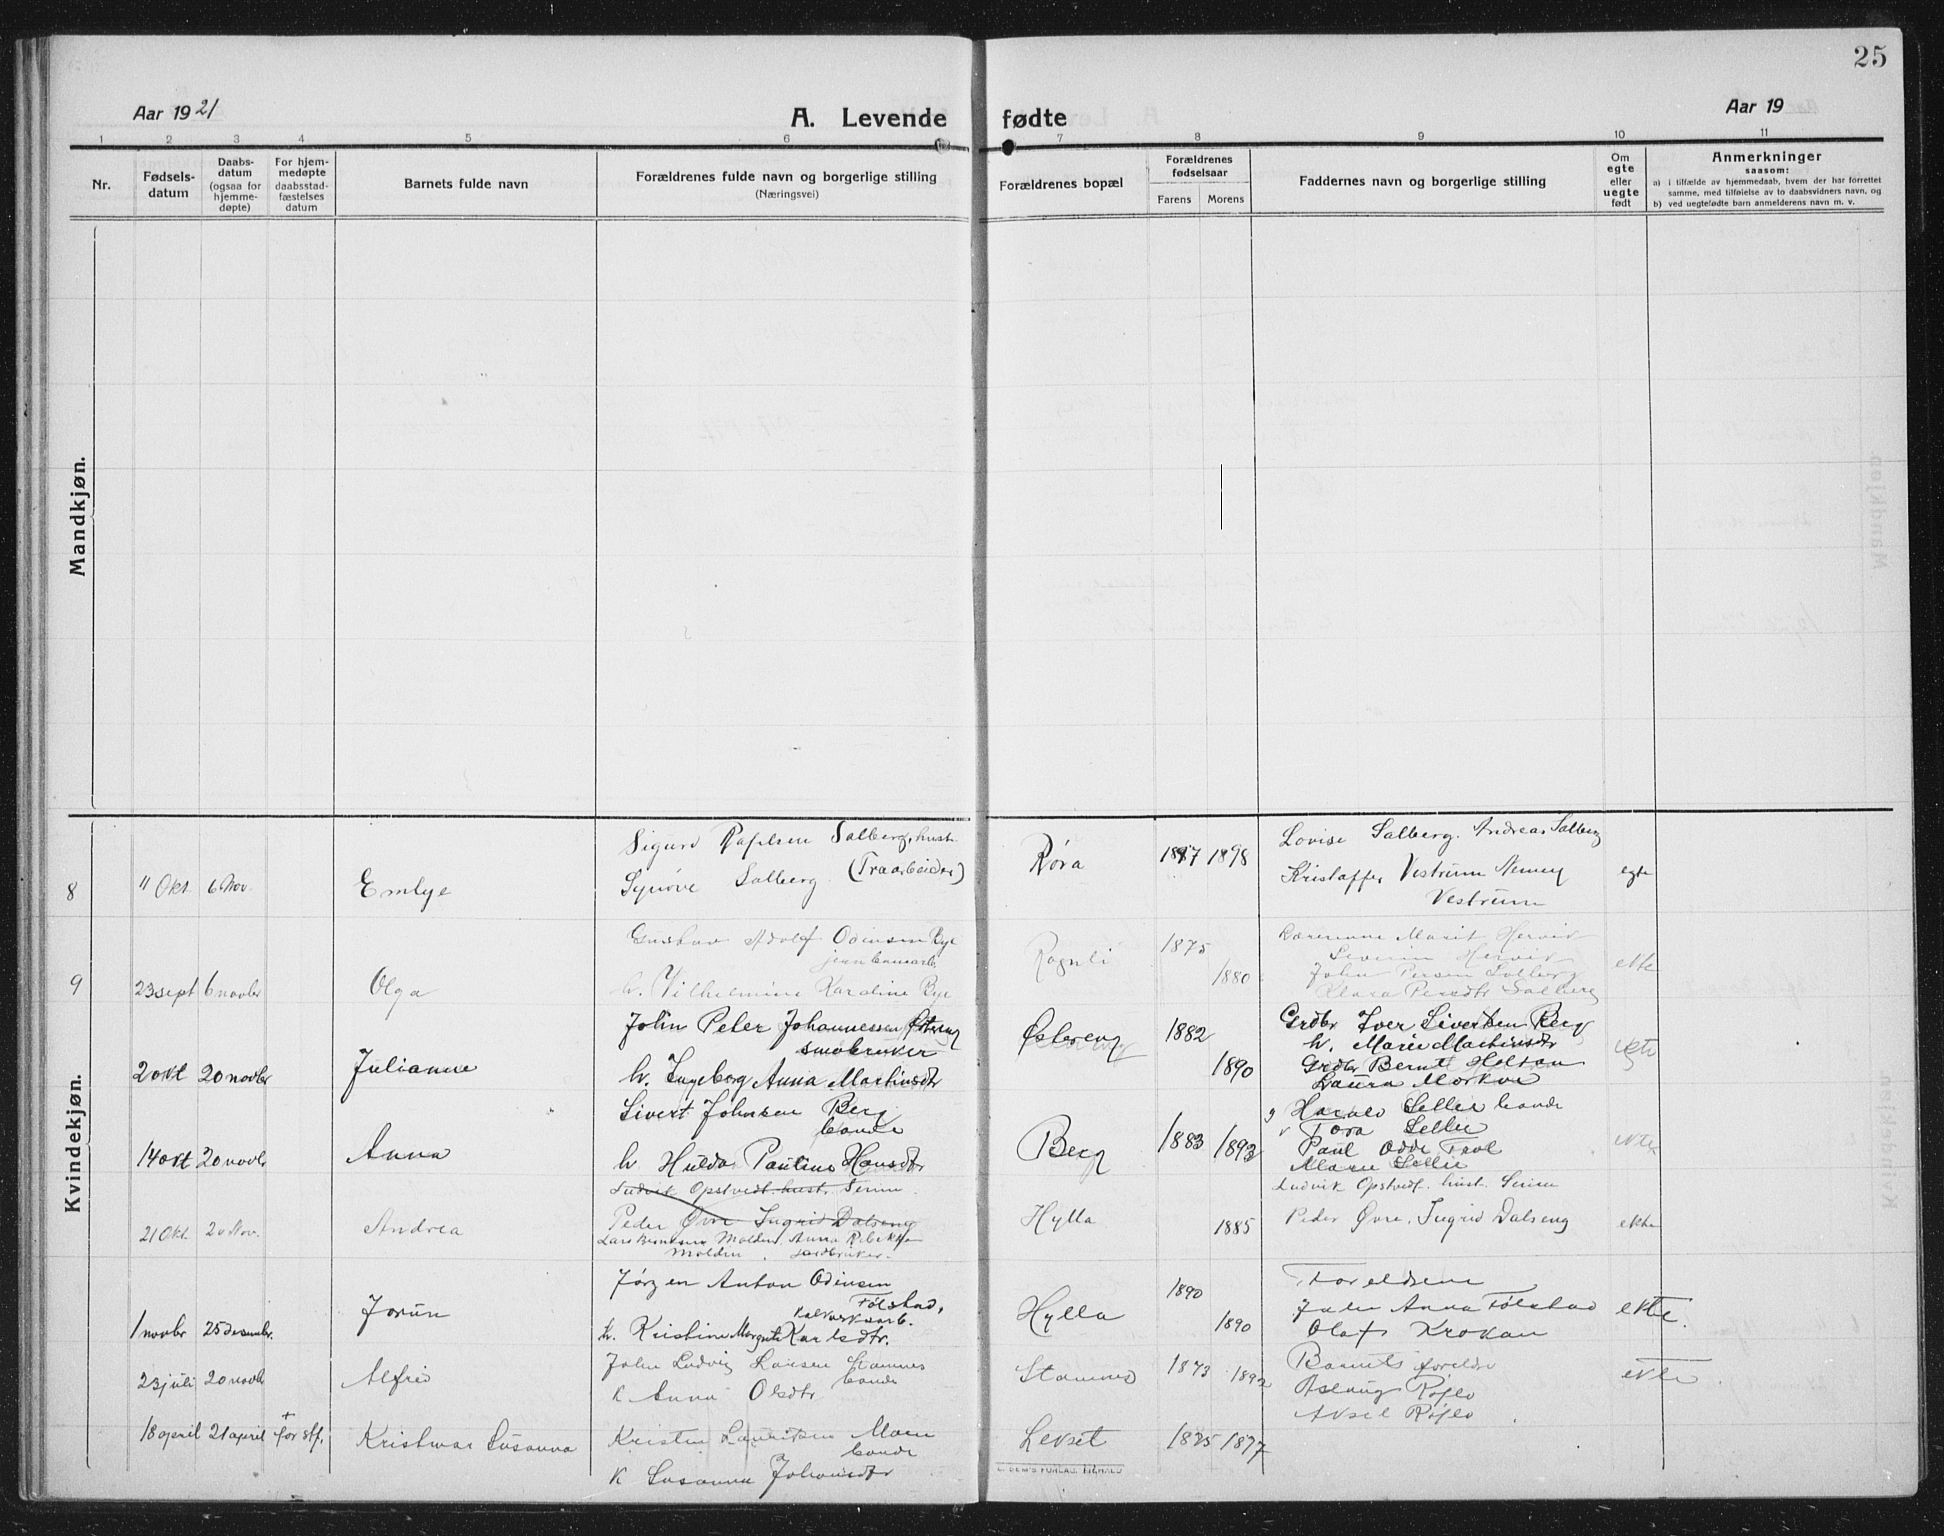 25
Aar 1921
A. Levende fødte
Aar 19
1 2 3 4 5 6 7 8 9 10 11
Nr.
Fødsels-
datum
Daabs-
datum
(ogsaa for
hjemme-
døpte)
For hjem-
medøpte
daabsstad-
fæstelses
datum
Barnets fulde navn
Forældrenes fulde navn og borgerlige stilling
(Næringsvei)
Forældrenes bopæl
Forældrenes
fødselsaar
Farens Morens
Faddernes navn og borgerlige stilling
Om
egte
eller
uegte
født
Anmerkninger
saasom:
a) i tilfælde av hjemmedaab, hvem der har forrettet
samme, med tilføielse av to daabsvidners navn, og
b) ved uegtefødte barn anmelderens navn m. v.
Mandkjøn.
Kvindekjøn.
8 11 Okt. 6 Nov. Emlye
Sigurd Salberg, hust.
Synøve Salberg. (Traarbeider)
Røra 1897 1898
Lovise Salberg. Andreas Salberg
Kristoffer Vestrum
Vestrum
egte
9 23 sept 6 novbr Olga
Gustav Adolf Odinsen Bye
h. Vilhelmine Karoline Bye
Rognli 1875 1880
Marit Hervik
Severin Hervik
John Persen Salberg
Klara Persdtr Salberg
ekte
2 okt 20 novbr Julianne
John Peter Johannessen Østereng
småbruker
h. Ingeborg Anna Martinsdtr
Østereng 1882 1890
Grdbr Iver Sivertsen Berg
h. Marie Martinsdtr
Grdbr Bernt Holtan
Laura Morkve
14 okt 20 novbr Anna
Sivert Johnsen Berg
bonde
h Hulda Pauline Hansdtr
Berg 1883 1893
g Harald Sellie bonde
Tora Sellie
Paul Odde Trol
Marie Sellie
ekte
21 Okt. 20 Nov. Andrea
Ludvik Opstvedt hust. Serine.
Peder Øvre Ingrid Dalseng
Lars Molden, Anna Rebekka
Molden. jordbruker.
Hylla 1885
Ludvik Opstvedt. hust. Serine
Peder Øvre, Ingrid Dalseng
ekte
1 novbr 25 desembr. Jorun
Jørgen Anton Odinsen
Følstad,
kalkverksarb.
h. Kristine Margrete Karlsdtr.
Hylla 1890 1890
Foreldrene
Anna Følstad
Olaf Krokan
ekte.
23 juli 20 novbr Alfrid
John Ludvig Larsen Stamnes
bonde
k Anna Olsdtr
Stamnes 1873 1892
Barnets foreldre
Aslaug Røflo
Aksel Røflo
ekte
18 april 21 april + før stf. Susanna
Kristen Lauritsen Moen
bonde
k Susanna Johansdtr
Lekset 1875 1877